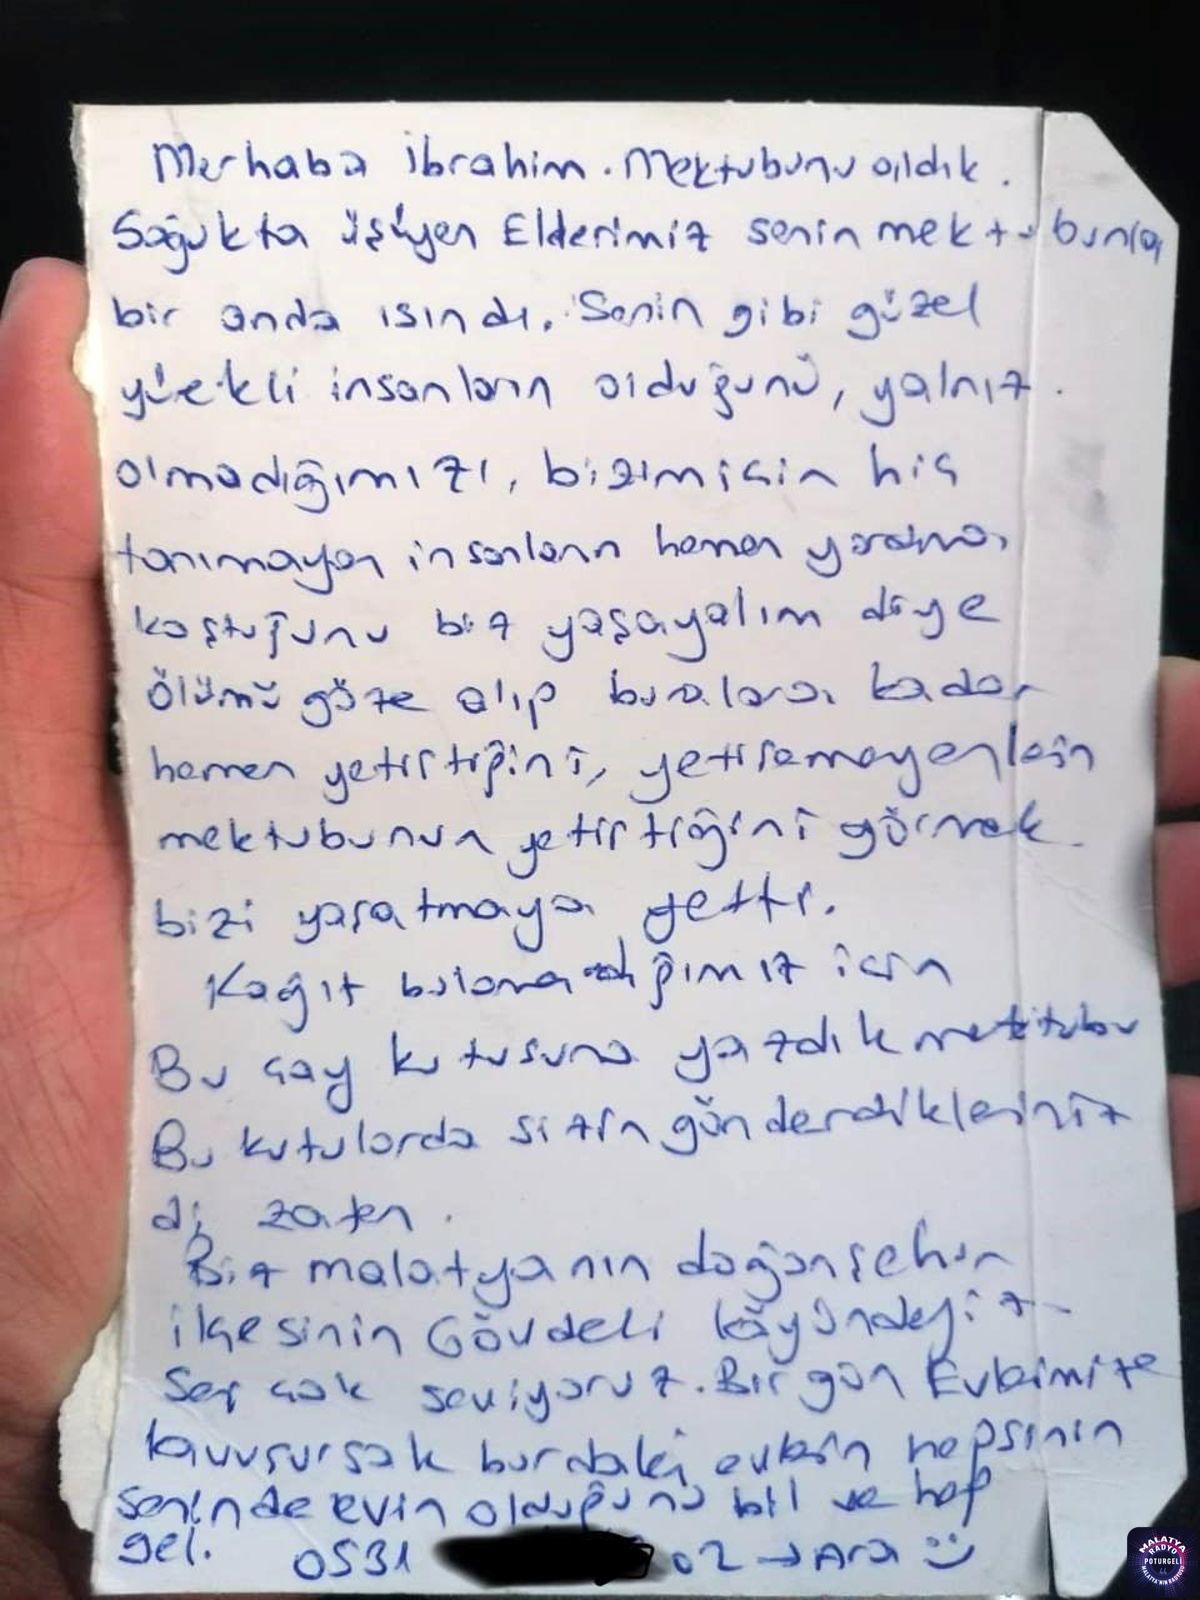 Merhaba İbrahim. Mektubunu aldık.
Soğukta üşüyen Ellerimiz senin mektubunla
bir anda ısındı. Senin gibi güzel
yürekli insanların olduğunu, yalnız
olmadığımızı, bizim için hiç
tanımayan insanların hemen yardıma
koştuğunu biz yaşayalım diye
ölümü göze alıp buralara kadar
hemen yetiştiğini, yetişemeyenlerin
mektubunun yetiştiğini görmek
bizi yaşatmaya yetti.
Kağıt bulamadığımız için
Bu çay kutusuna yazdık mektubu
Bu kutularda sizin gönderdikleriniz
di zaten.
Biz malatyanın doğanşehir
ilçesinin Gövdeli köyündeyiz
Seni çok seviyoruz. Bir gün Evlerimize
kavuşursak burdaki evlerin hepsinin
seninde evin olduğunu bil ve hep
gel. 0531 02 → Ara :)
MALATYA
RADYO
POTURGELİ
44
MALATYA'NIN RADYOSU